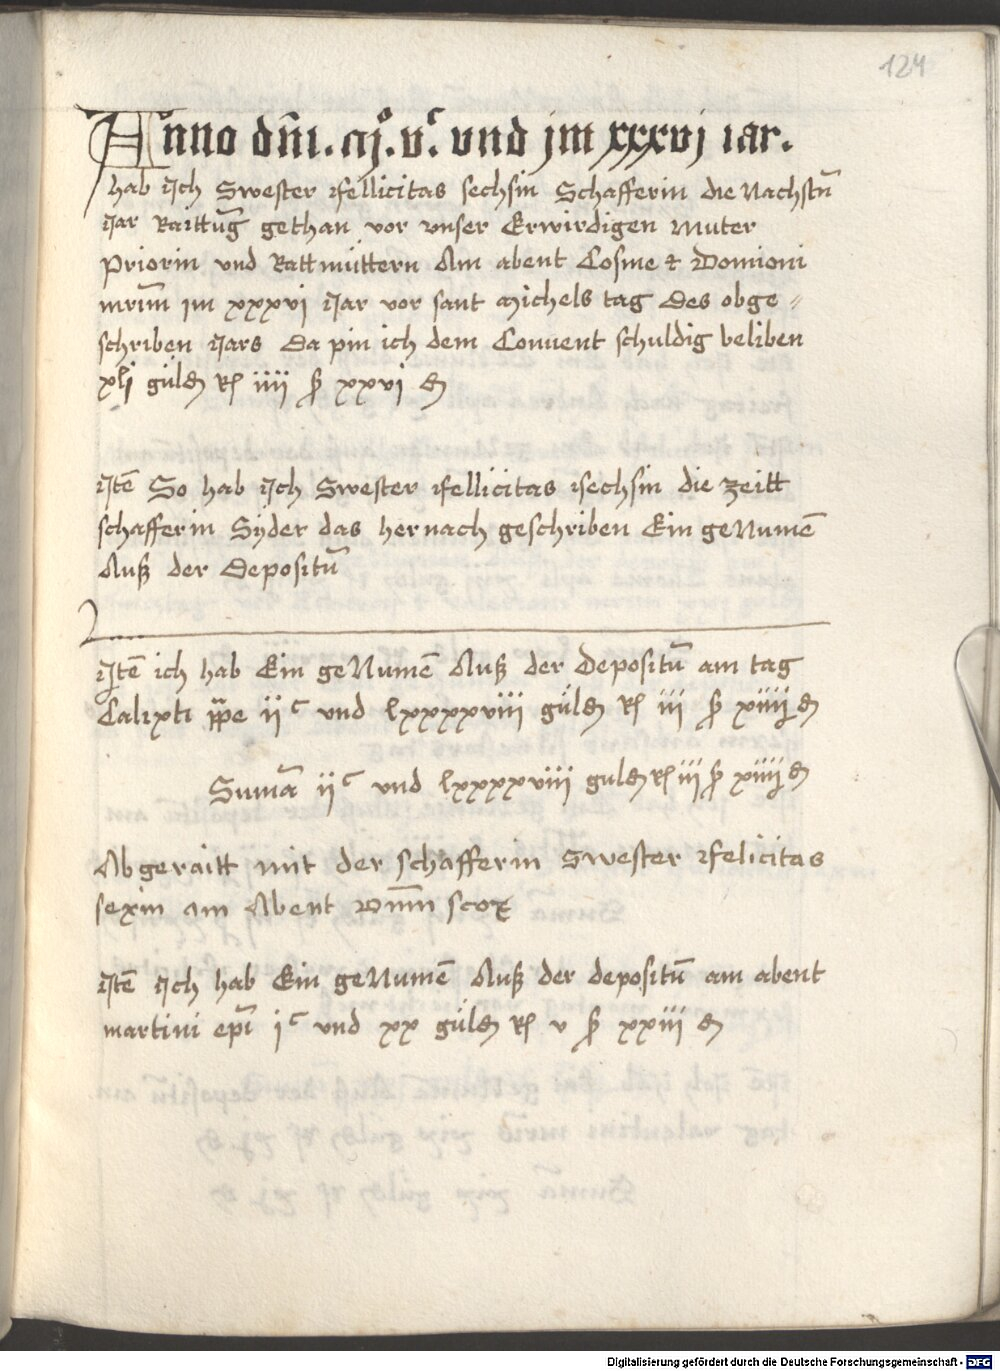 124
Anno dn̄i. mͦ. vᶜ. vnd jm xxxvj iar.
hab Ich Swester Fellicitas sechsin Schafferin die Nachstn̄
Jar Raittūg gethan vor vnser Erwirdigen Muter
Priorin vnd Rattmüttern Am abent Cosme et Domioni
mrīm im xxxvi Jar vor sant Michels tag Des obge=
schriben Jars Da pin ich dem Conuent schuldig beliben
xlj güld R iiii ß xxvi d
Itē So hab Ich Swester Fellicitas sechsin die zeitt
schafferin Syder das hernach geschriben Ein geNumē
Auß der Depositū
Itē ich hab Ein geNumē Auß der Depositū am tag
Calixti ppe iiᶜ vnd lxxxxviii güld R iii ß xiiij d
Sumā iiᶜ vnd lxxxxviii guld R iii ß xiiij d
Abgeraitt mit der schafferin Swester Felicitas
sexin am Abent Om̄ scoꝝ
Itē Ich hab Ein geNumē Auß der depositū am abent
martini epī iᶜ vnd xx güld R v ß xxiii d
Digitalisierung gefördert durch die Deutsche Forschungsgemeinschaft - DFG